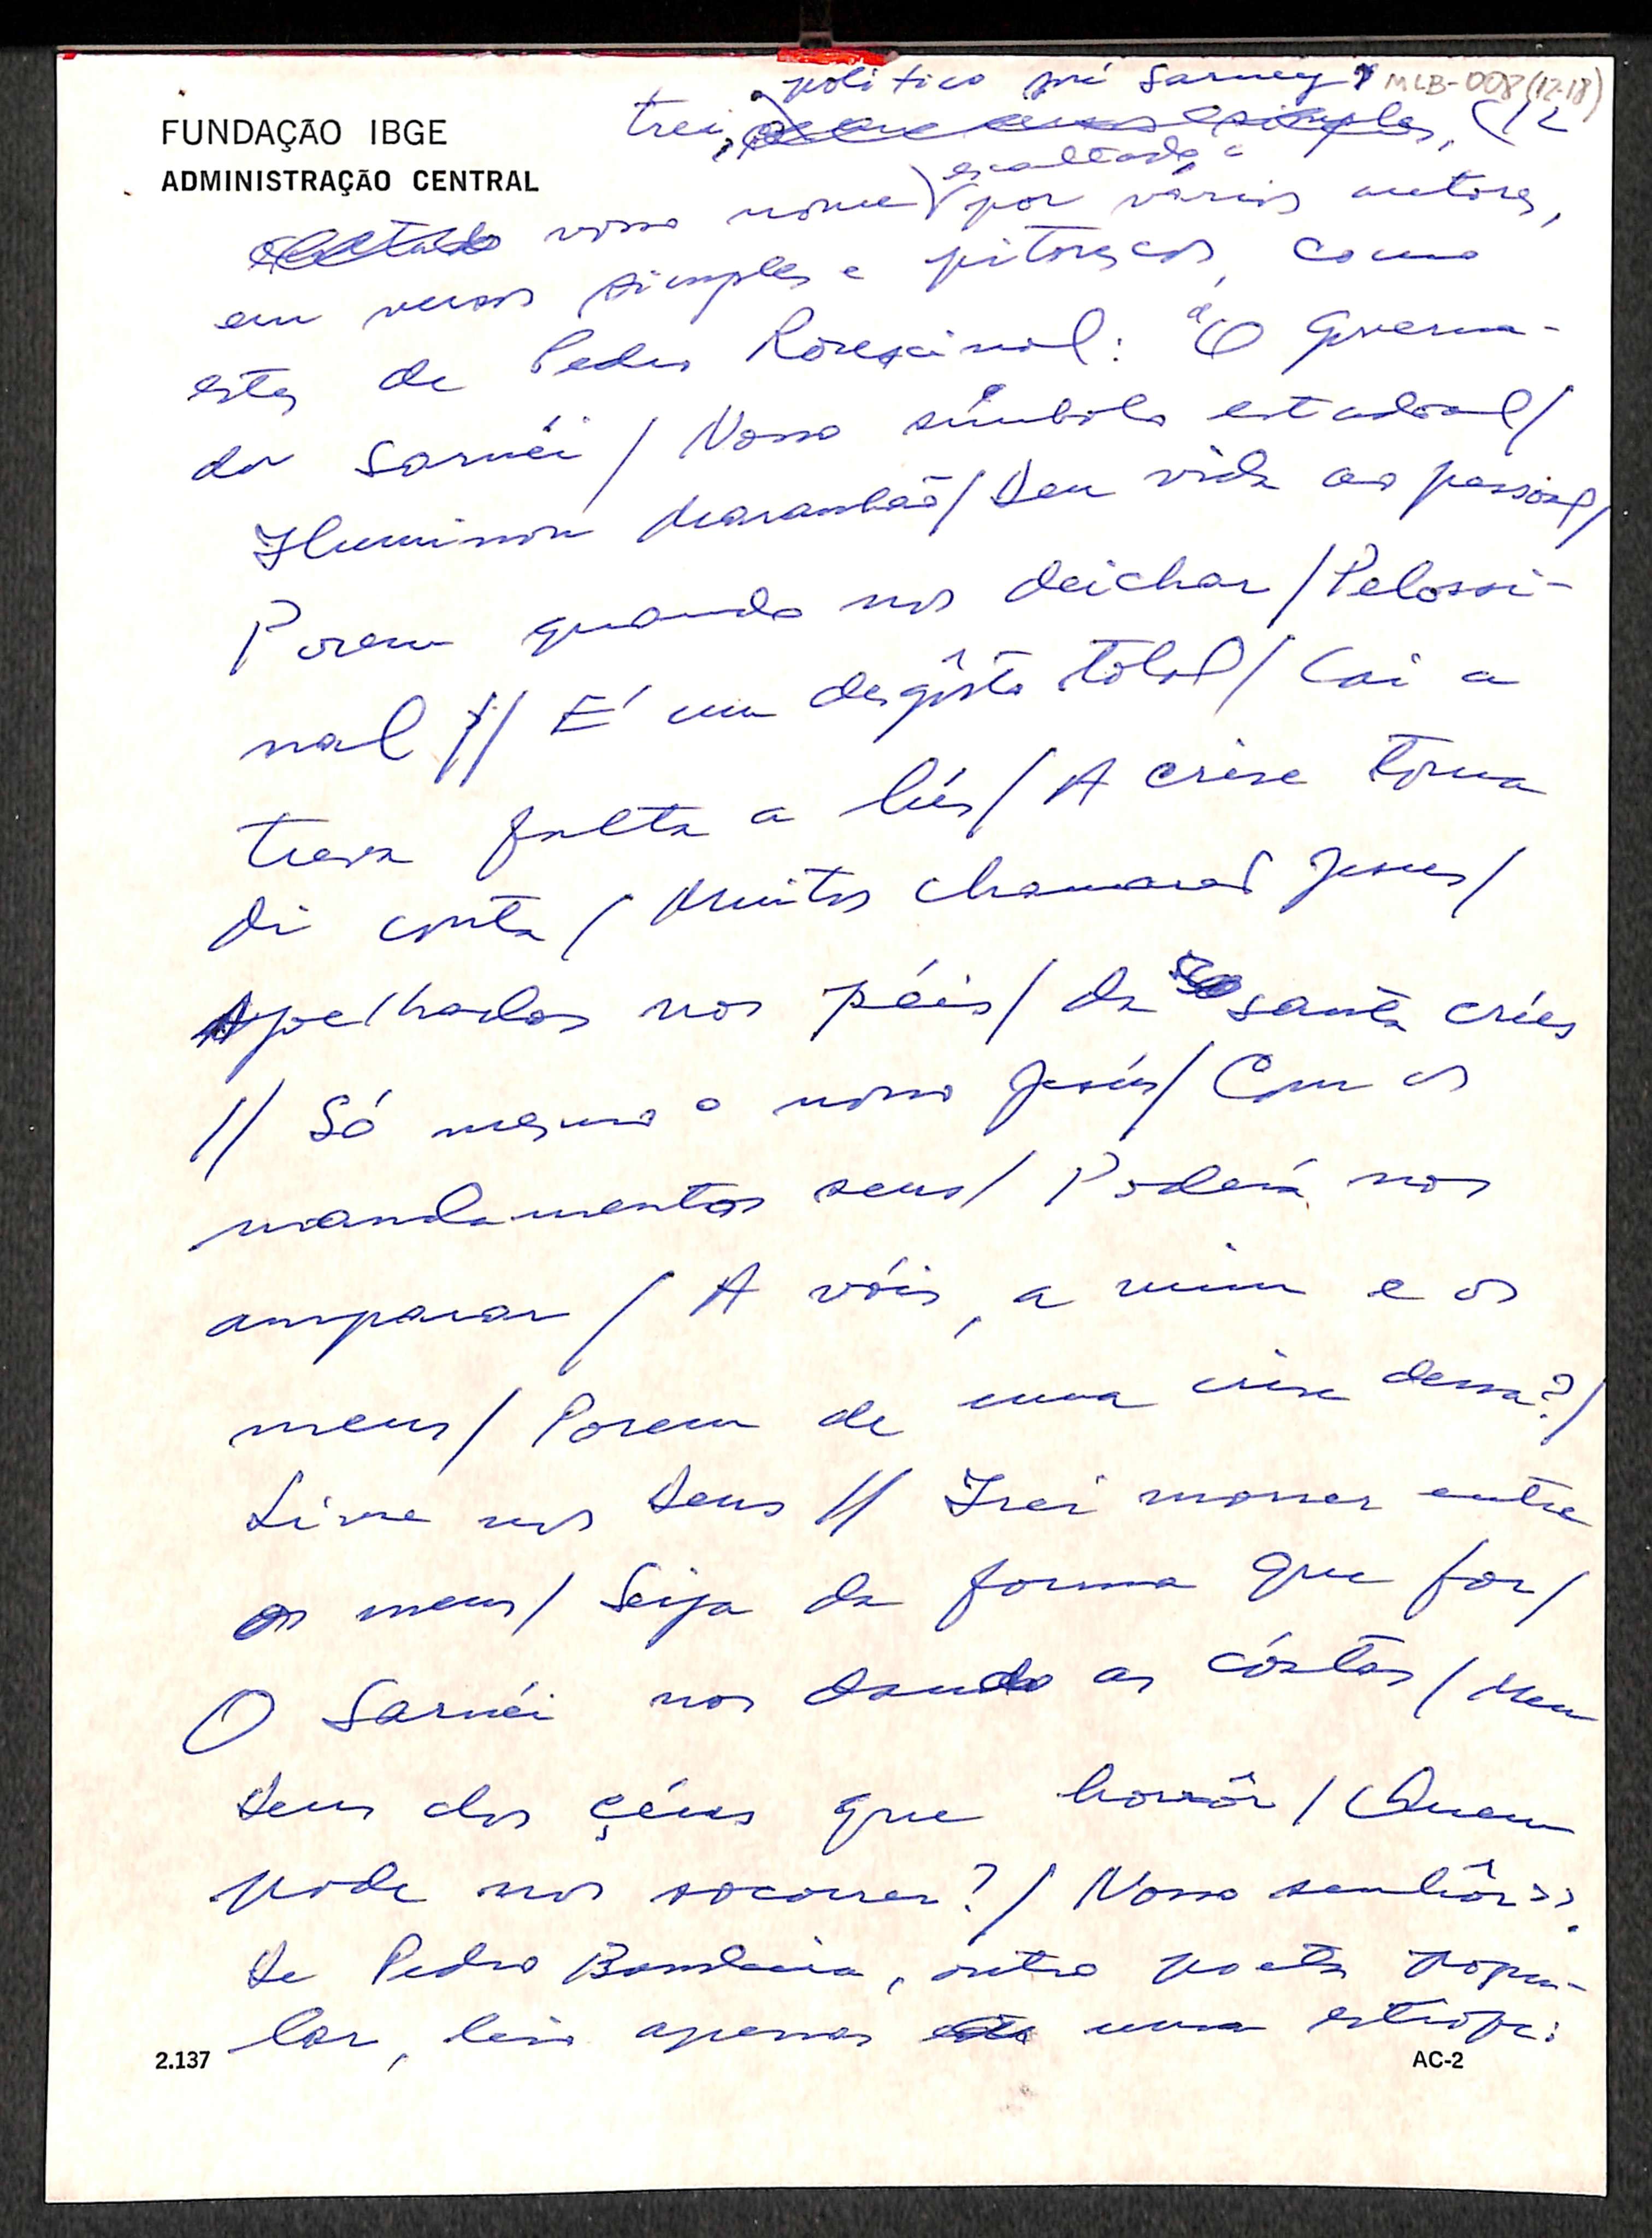 politico pré Sarney MLB-008(12-18)
FUNDAÇÃO IBGE
trei, (12
ADMINISTRAÇÃO CENTRAL
exaltado é
vosso nome por vários autores,
em versos simples e pitorescos, como
estes de Pedro : "O Governa-
dor Sarnéi / Nosso símbolo estadoal /
Iluminou Maranhão / Deu vida ao pessoal /
Porem quando nos deichar / Pelossi-
nal // É um desgôsto total / Cai a
treva falta a lús / A crise toma
di conta / Muitos chamarás Jesus /
Ajoelhados nos péis / da santa crús
// Só mesmo o nosso Jesús / Com os
mandamentos seus / Poderá nos
amparar / A vóis, a mim e os
meus / Porem de uma crise dessa? /
Livre nos Deus // Irei morrer entre
os meus / Seija da forma que for /
O Sarnéi nos dando as cóstas / Meu
Deus dos çéus que horrôr / Quem
pode nos socorrer? / Nosso senhôr".
De Pedro Bandeira, outro poeta popu-
lar, leio apenas uma estrofe:
2.137
AC-2